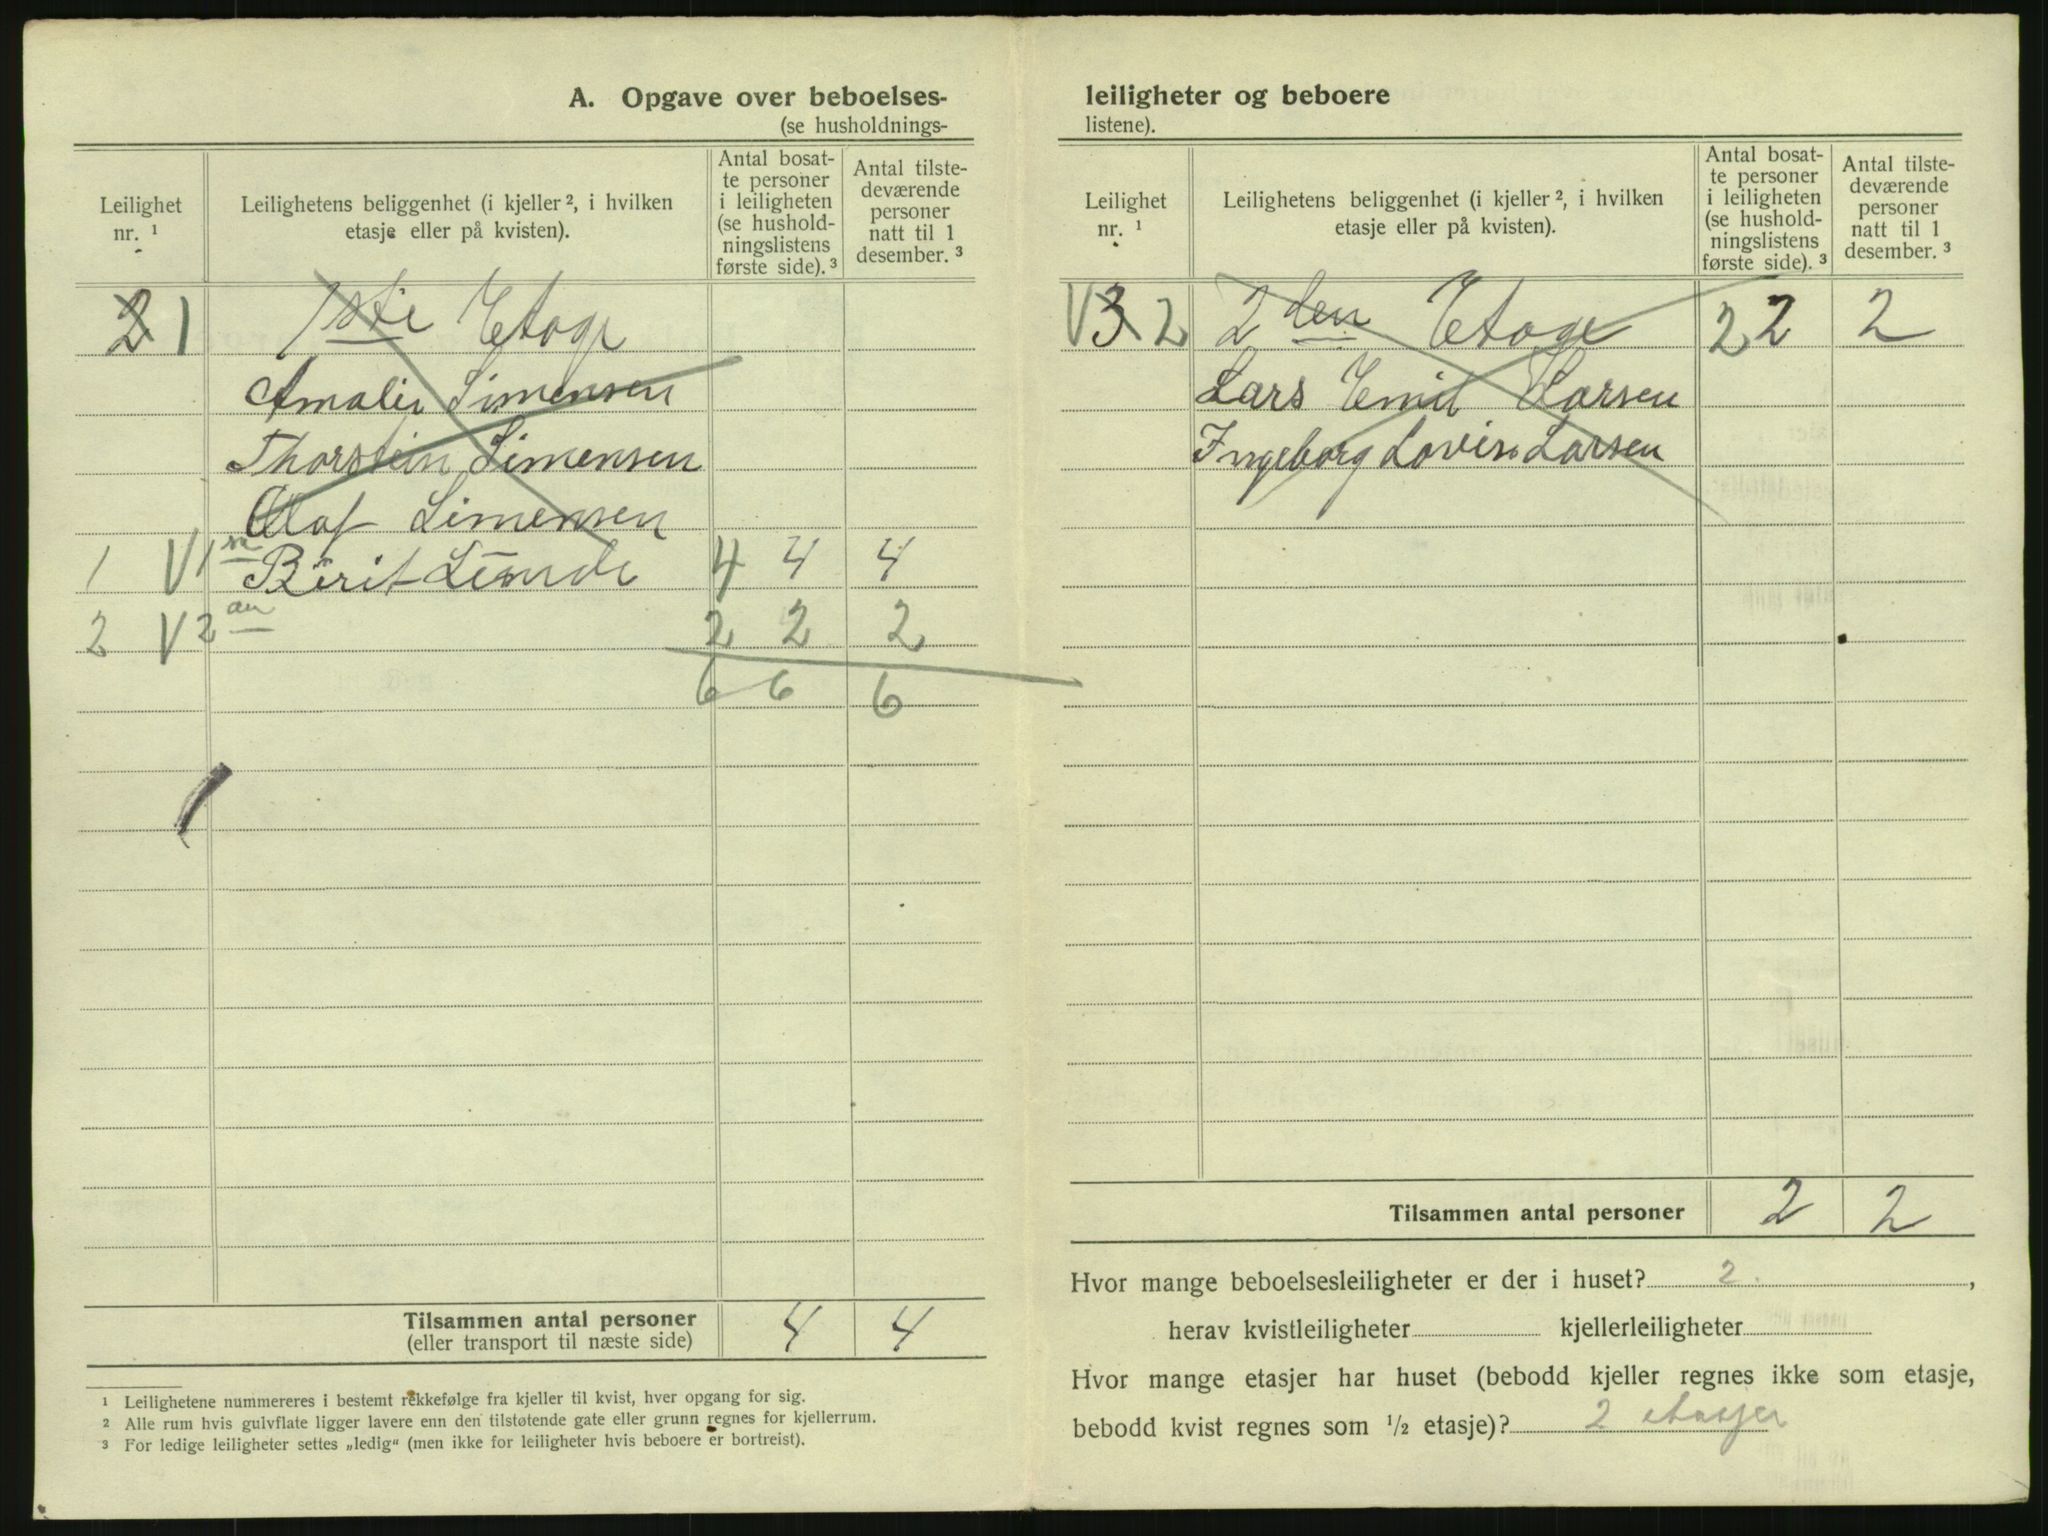 A. Opgave over beboelses-
(se husholdnings-
Leilighet
nr. ¹
Leilighetens beliggenhet (i kjeller ², i hvilken
etasje eller på kvisten).
Antal bosat-
te personer
i leiligheten
(se hushold-
ningslistens
første side). ³
Antal tilste-
deværende
personer
natt til 1
desember. ³
2 1 1ste Etage
Amalie Simensen
Thorstein Simensen
Olaf Simensen
1 V 1 Berit 4 4 4
2 V 2 2 2 2
6 6 6
Tilsammen antal personer 4 4
(eller transport til næste side)
¹ Leilighetene nummereres i bestemt rekkefølge fra kjeller til kvist, hver opgang for sig.
² Alle rum hvis gulvflate ligger lavere enn den tilstøtende gate eller grunn regnes for kjellerrum.
³ For ledige leiligheter settes „ledig“ (men ikke for leiligheter hvis beboere er bortreist).
leiligheter og beboere
listene).
Leilighet
nr. ¹
Leilighetens beliggenhet (i kjeller ², i hvilken
etasje eller på kvisten).
Antal bosat-
te personer
i leiligheten
(se hushold-
ningslistens
første side). ³
Antal tilste-
deværende
personer
natt til 1
desember. ³
V 3 2 2den Etage 2 2 2
Lars Emil Larsen
Ingeborg Lovise Larsen
Tilsammen antal personer 2 2
Hvor mange beboelsesleiligheter er der i huset? 2.,
herav kvistleiligheter kjellerleiligheter
Hvor mange etasjer har huset (bebodd kjeller regnes ikke som etasje,
bebodd kvist regnes som ½ etasje)? 2 etasjer